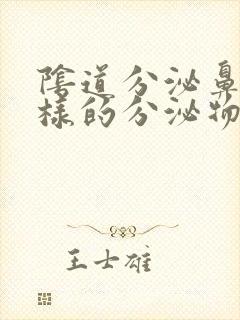 陰道分泌鼻
樣的分泌物
王士雄